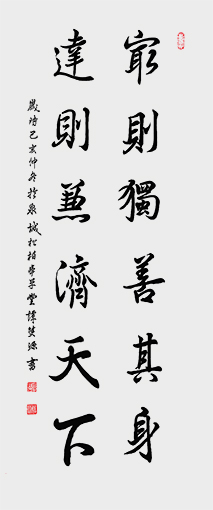 窮則獨善其身
達則兼濟天下
歲時己亥仲冬於泉城松柏草堂譚英源書